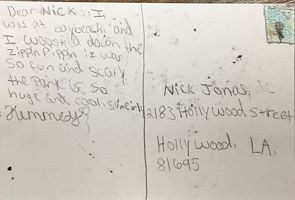 Dear Nick, I
was at baybeach and
I whooshed down the
zippin Pippin it was
so fun and scary
the park is so
huge and cool, sincerly
Kennedy
Nick Jonas,
2183 Hollywood Street
Hollywood, LA,
81695